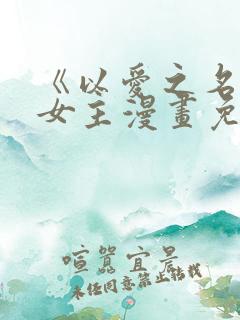 《以愛之名
女王漫畫免
喧囂宜景
未经同意禁止转载